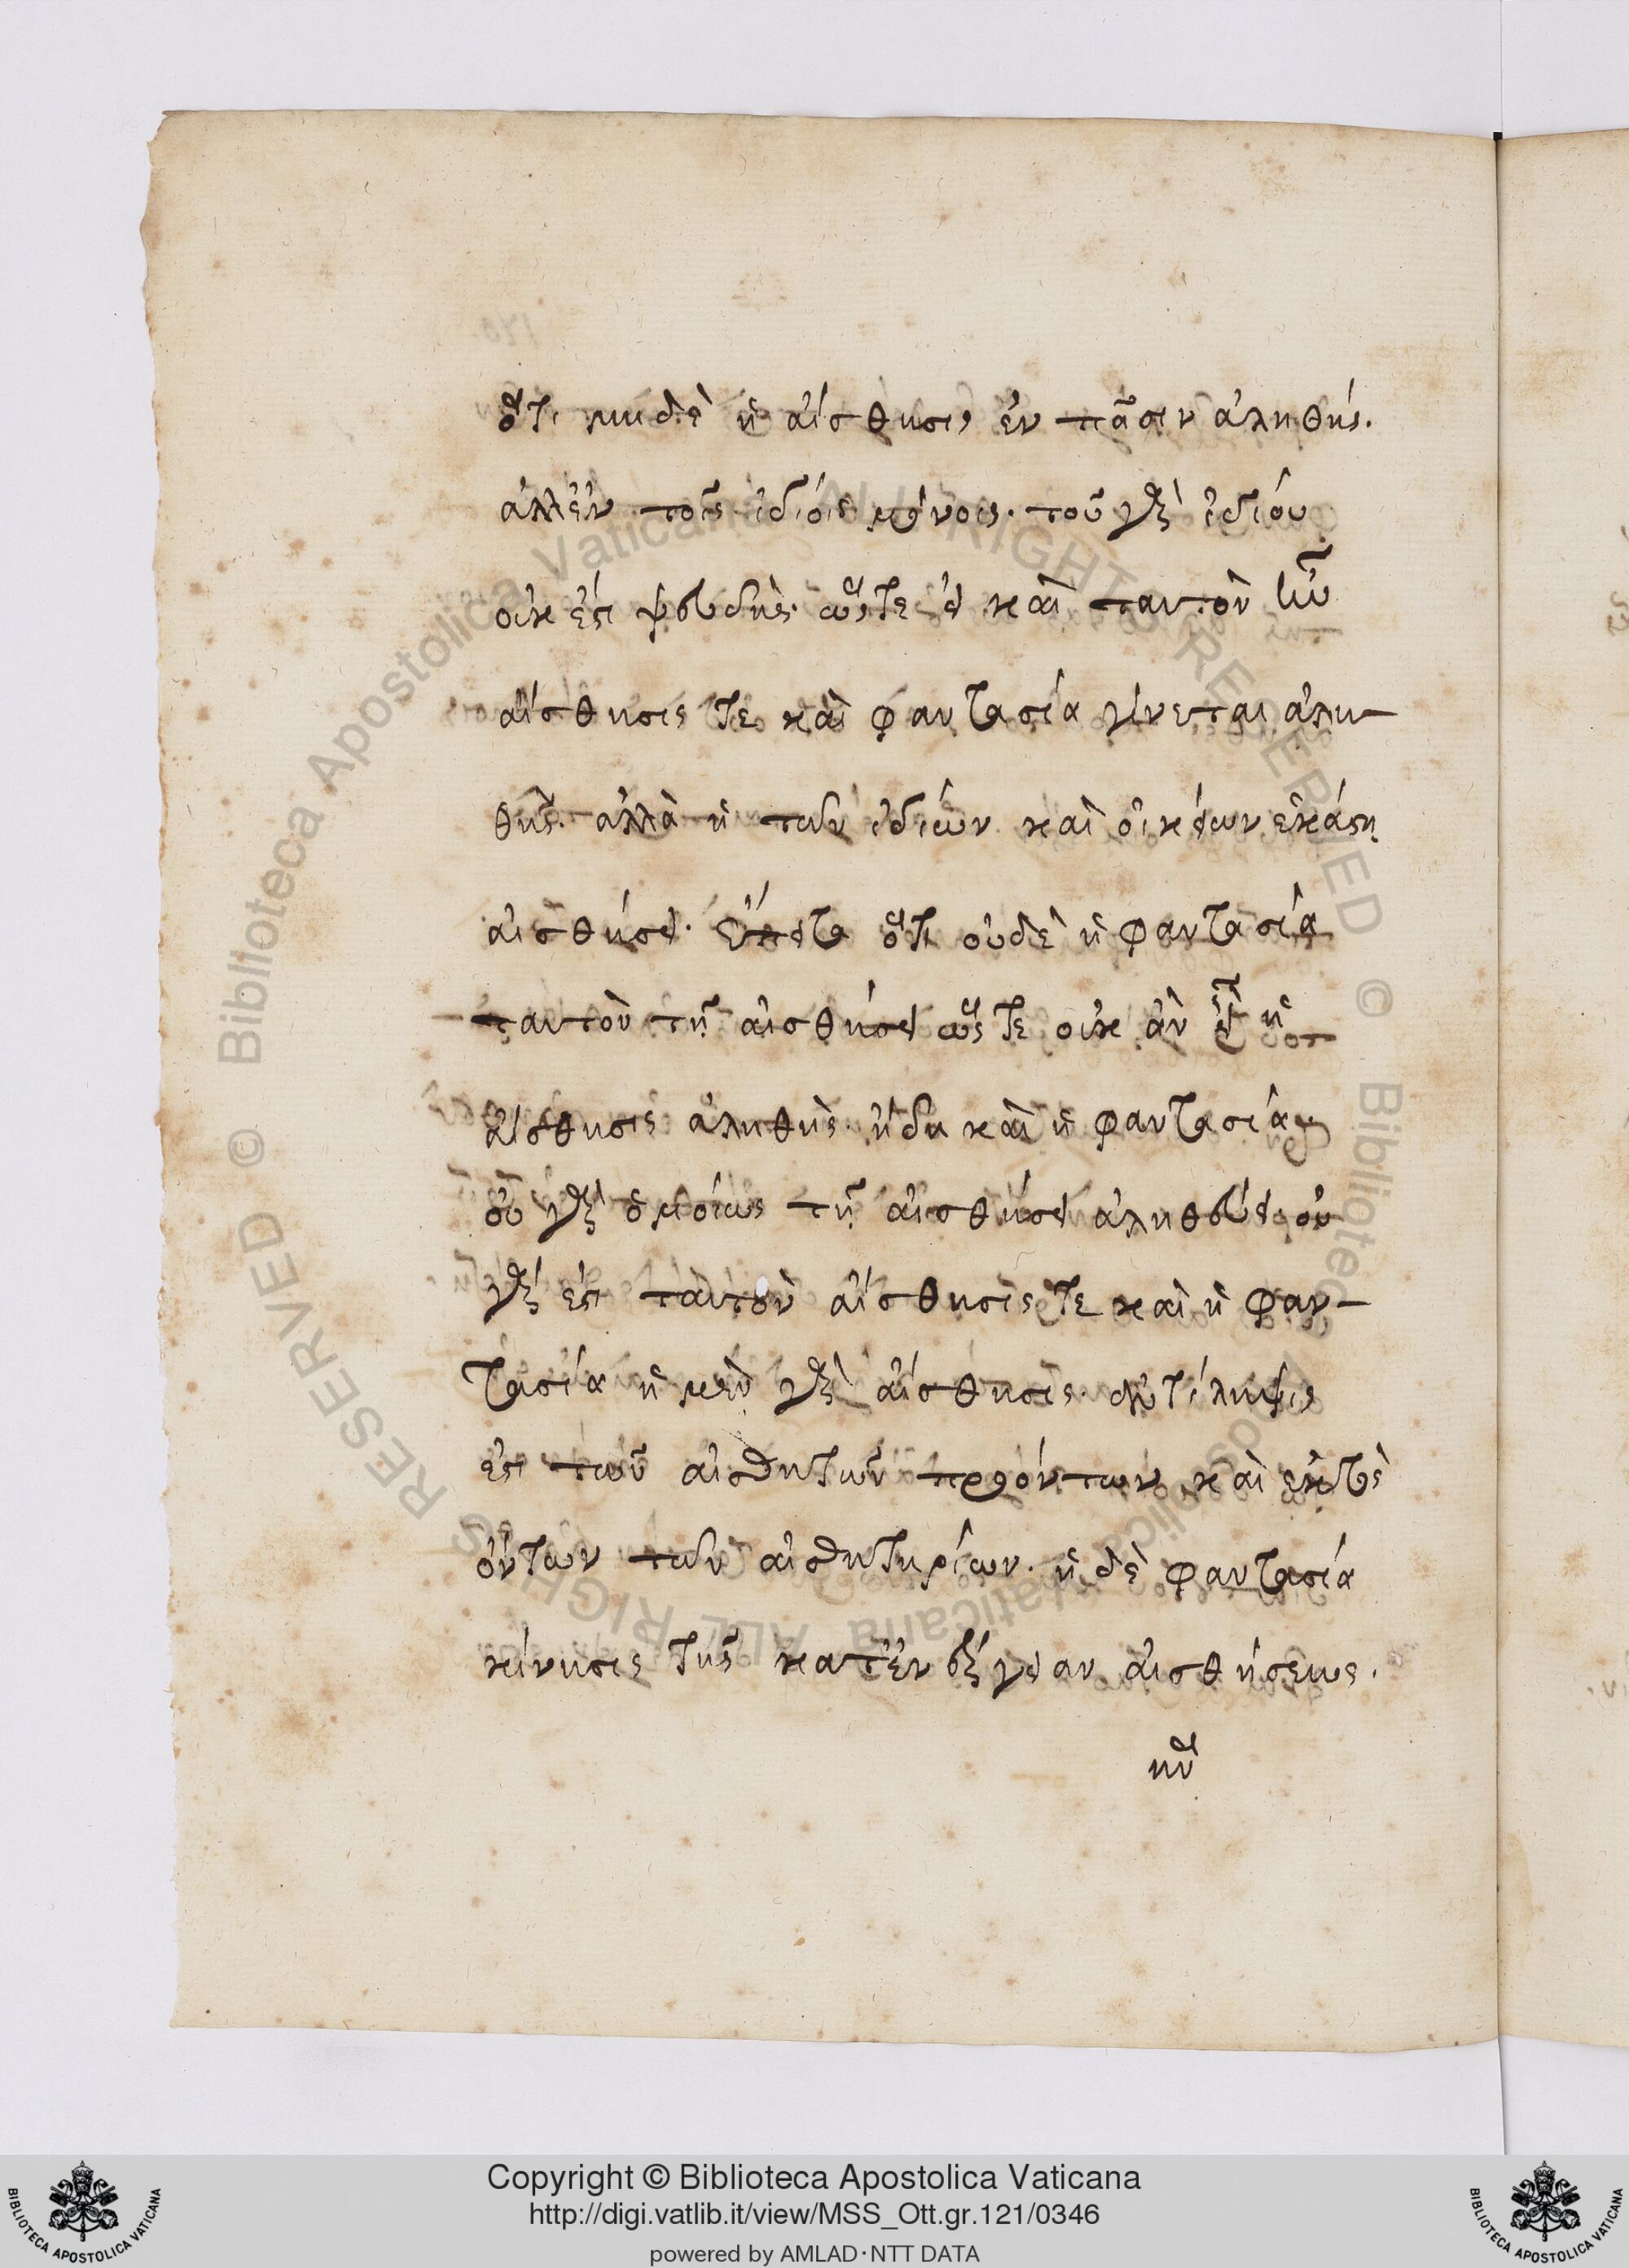 ὅτι μηδὲ ἡ αἴσθησις ἐν πᾶσιν ἀληθής.
ἀλλ' ἐν τοῖς ἰδίοις μόνοις· τοῦ γὰρ ἰδίου
οὐκ ἐστὶ ψευδὴς· ὥστε εἰ καὶ ταυτὸν ἦν
αἴσθησις τε καὶ φαντασία γίνεται ἀλη-
θὴς· ἀλλὰ ἡ τῶν ἰδίων καὶ οἰκείων ἑκάστη
αἰσθήσει. ὅτι οὐδὲ ἡ φαντασία
ταυτὸν τῇ αἰσθήσει ὥστε οὐκ ἂν εἴη ἡ
αἴσθησις ἀληθὴς ἤδη καὶ ἡ φαντασία
οὐ γὰρ ὁμοίως τῇ αἰσθήσει ἀληθεύει· οὐ
γάρ ἐστι ταυτὸν αἴσθησίς τε καὶ ἡ φαν-
τασία ἡ μὲν γὰρ αἴσθησις ἀντίληψις
ἐστι τῶν αἰσθητῶν παρόντων καὶ ἐκτὸς
ὄντων τῶν αἰσθητηρίων. ἡ δὲ φαντασία
κίνησις τῆς κατ' ἐνέργειαν αἰσθήσεως.
Copyright © Biblioteca Apostolica Vaticana
http://digi.vatlib.it/view/MSS_Ott.gr.121/0346
powered by AMLAD·NTT DATA
BIBLIOTECA APOSTOLICA VATICANA
BIBLIOTECA APOSTOLICA VATICANA